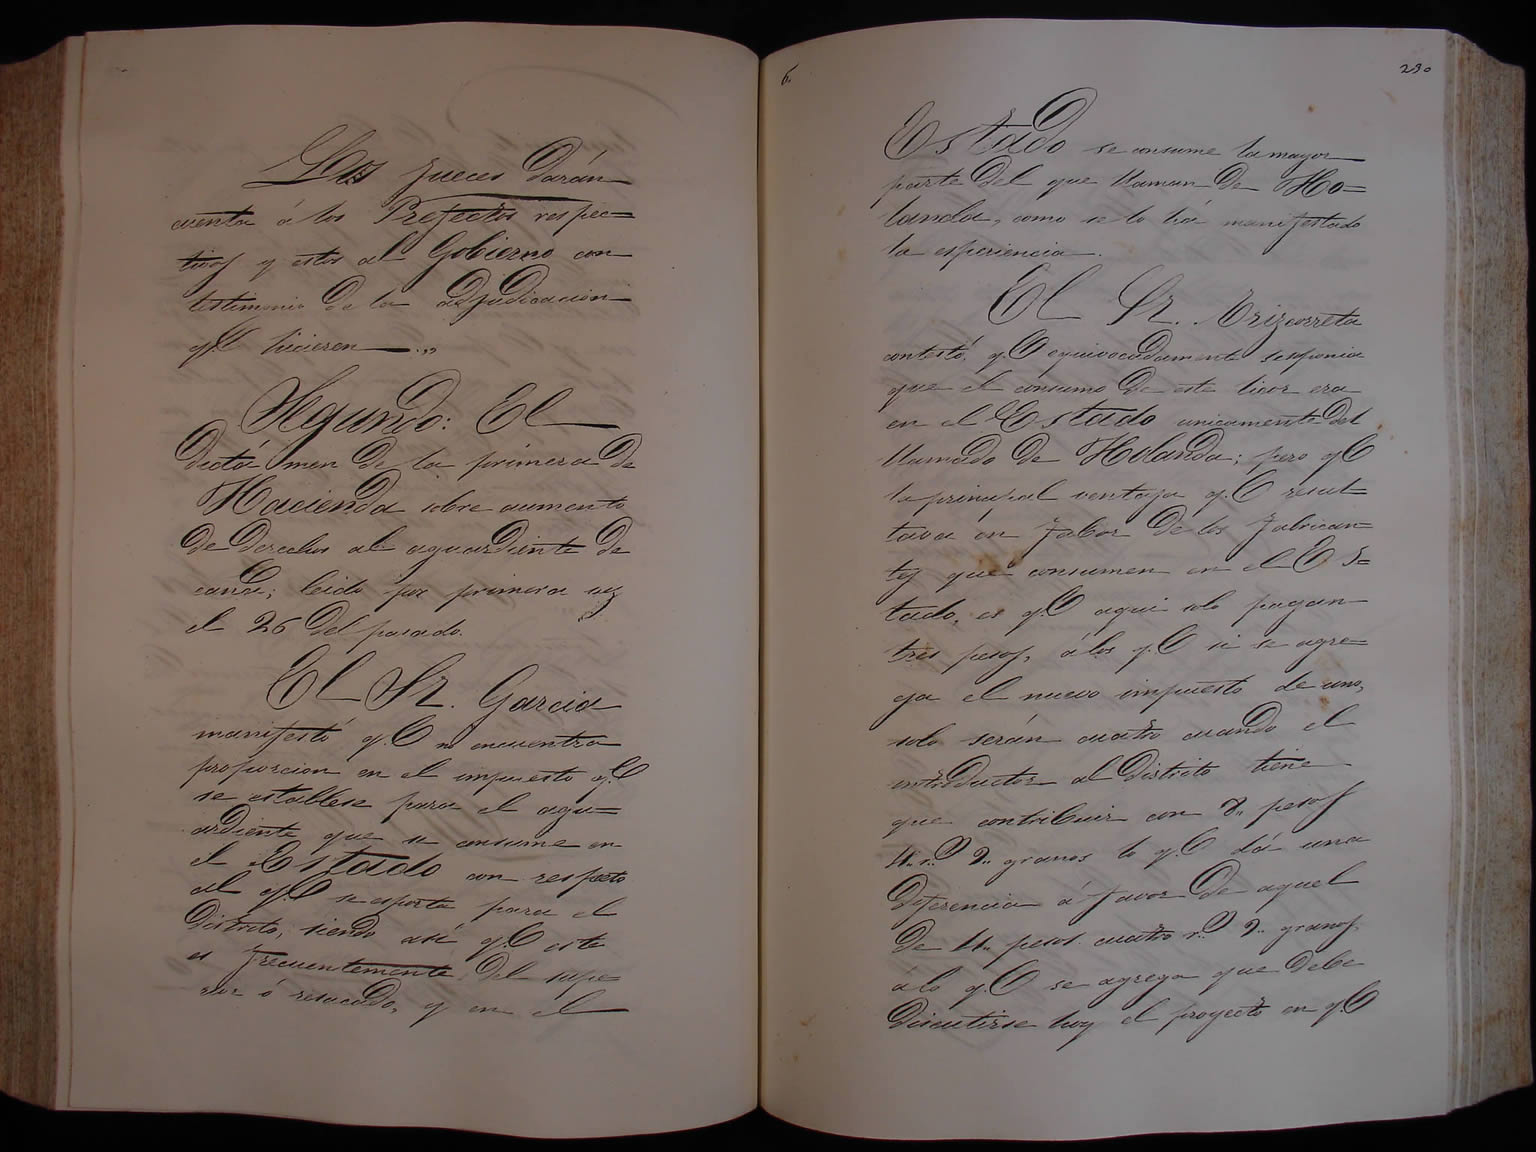 Los jueces darán
cuenta á los Prefectos respec=
tivos y estos al Gobierno con
testimonio de la adjudicacion
q.e hicieren.,,
Segundo: El
dictámen de la primera de
Hacienda sobre aumento
de derechos al aguardiente de
caña; leido por primera vez
el 26 del pasado.
El Sr. Garcia
manifestó q.e no encuentra
proporcion en el impuesto q.e
se establese para el agu=
ardiente que se consume en
el Estado con respecto
al q.e se esporta para el
Distrito, siendo asi q.e este
es frecuentemente del supe=
rior ó resacado, y en el
6.
230
Estado se consume la mayor
parte del que llaman de Ho=
landa, como se lo há manifestado
la esperiencia.
El Sr. Arizcorreta
contestó, q.e equivocadamente se suponia
que el consumo de este licor era
en el Estado unicamente del
llamado de Holanda; pero q.e
la principal ventaja q.e resul=
tava en fabor de los fabrican=
tes que consumen en el Es=
tado, es q.e aqui solo pagan
tres pesos, á los q.e si se agre=
ga el nuevo impuesto de uno,
solo serán cuatro cuando el
introductor al Distrito tiene
que contribuir con 8,, pesos
4,, r.s 9,, granos lo q.e dá una
diferencia á favor de aquel
de 4,, pesos cuatro r.s 9,, granos,
á lo q.e se agrega que debe
discutirse hoy el proyecto en q.e